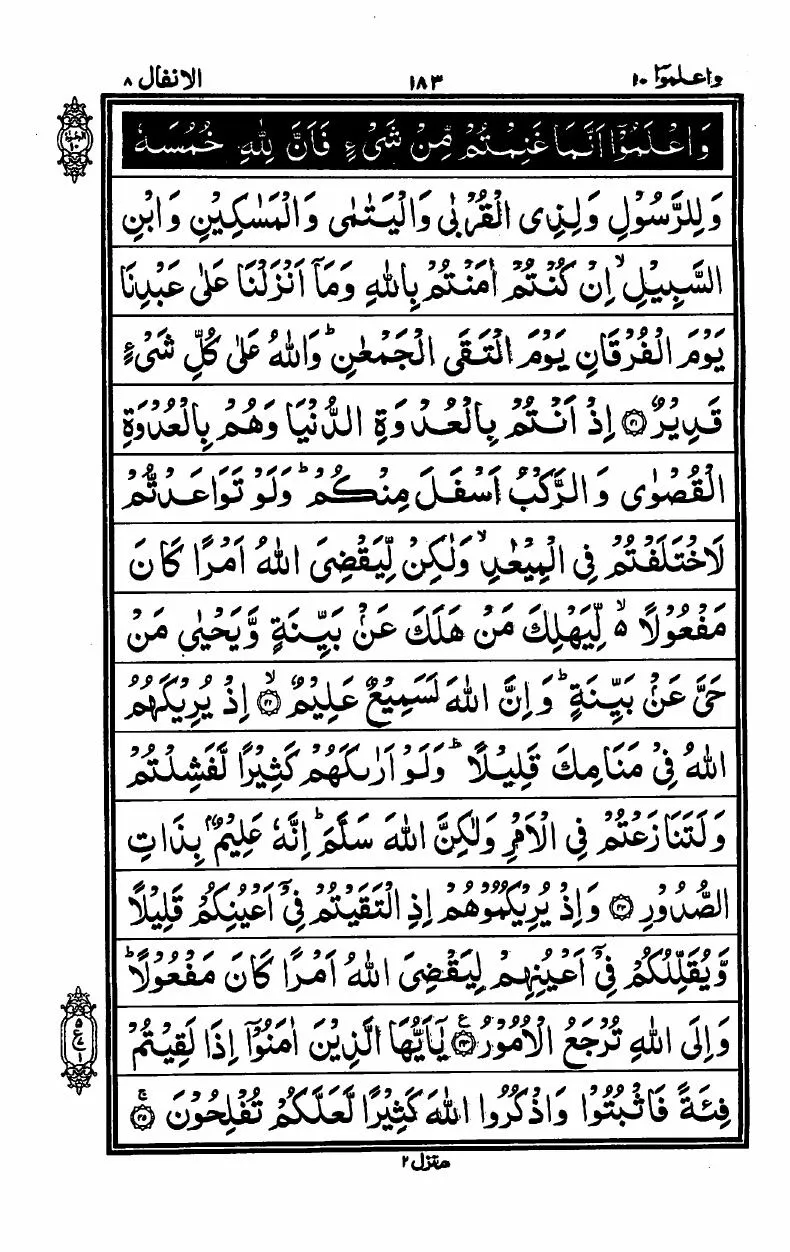 واعلموٓا ١٠
١٨٣
الانفال ٨
الجزء ١٠
وَاعْلَمُوْٓا اَنَّمَا غَنِمْتُمْ مِّنْ شَیْءٍ فَاَنَّ لِلّٰهِ خُمُسَهٗ
وَ لِلرَّسُوْلِ وَلِذِی الْقُرْبٰی وَالْیَتٰمٰی وَالْمَسٰكِیْنِ وَابْنِ
السَّبِیْلِ ۙ اِنْ كُنْتُمْ اٰمَنْتُمْ بِاللّٰهِ وَمَاۤ اَنْزَلْنَا عَلٰی عَبْدِنَا
یَوْمَ الْفُرْقَانِ یَوْمَ الْتَقَی الْجَمْعٰنِ ؕ وَاللّٰهُ عَلٰی كُلِّ شَیْءٍ
قَدِیْرٌ ﴿۴۱﴾ اِذْ اَنْتُمْ بِالْعُدْوَةِ الدُّنْیَا وَهُمْ بِالْعُدْوَةِ
الْقُصْوٰی وَالرَّكْبُ اَسْفَلَ مِنْكُمْ ؕ وَلَوْ تَوَاعَدْتُّمْ
لَاخْتَلَفْتُمْ فِی الْمِیْعٰدِ ۙ وَلٰكِنْ لِّیَقْضِیَ اللّٰهُ اَمْرًا كَانَ
مَفْعُوْلًا ۵ۙ لِّیَهْلِكَ مَنْ هَلَكَ عَنْۢ بَیِّنَةٍ وَّیَحْیٰی مَنْ
حَیَّ عَنْۢ بَیِّنَةٍ ؕ وَاِنَّ اللّٰهَ لَسَمِیْعٌ عَلِیْمٌ ۙ﴿۴۲﴾ اِذْ یُرِیْكَهُمُ
اللّٰهُ فِیْ مَنَامِكَ قَلِیْلًا ؕ وَلَوْ اَرٰىكَهُمْ كَثِیْرًا لَّفَشِلْتُمْ
وَلَتَنَازَعْتُمْ فِی الْاَمْرِ وَلٰكِنَّ اللّٰهَ سَلَّمَ ؕ اِنَّهٗ عَلِیْمٌۢ بِذَاتِ
الصُّدُوْرِ ﴿۴۳﴾ وَاِذْ یُرِیْكُمُوْهُمْ اِذِ الْتَقَیْتُمْ فِیْۤ اَعْیُنِكُمْ قَلِیْلًا
وَّیُقَلِّلُكُمْ فِیْۤ اَعْیُنِهِمْ لِیَقْضِیَ اللّٰهُ اَمْرًا كَانَ مَفْعُوْلًا ؕ
وَاِلَی اللّٰهِ تُرْجَعُ الْاُمُوْرُ ۧ﴿۴۴﴾ یٰۤاَیُّهَا الَّذِیْنَ اٰمَنُوْۤا اِذَا لَقِیْتُمْ
۵ ع ۷ ۱
فِئَةً فَاثْبُتُوْا وَاذْكُرُوا اللّٰهَ كَثِیْرًا لَّعَلَّكُمْ تُفْلِحُوْنَ ۚ﴿۴۵﴾
منزل ۲